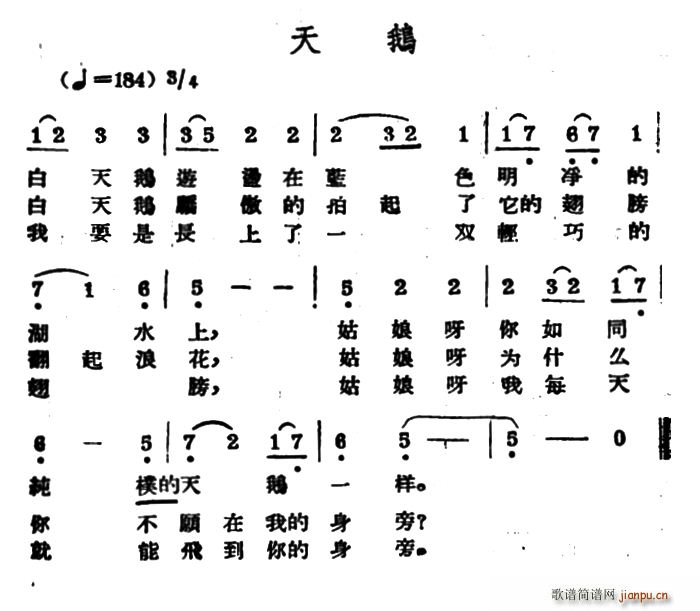 天 鵝
(♩=184) 3/4
1 2 3 3 | 3 5 2 2 | 2 3 2 1 | 1 7 6 7 1 |
白 天 鵝 遊 盪 在 藍 色 明 净 的
白 天 鵝 驕 傲 的 拍 起 了 它的 翅 膀
我 要 是 長 上 了 一 双 輕 巧 的
7 1 6 | 5 — — | 5 2 2 | 2 3 2 1 7 |
湖 水 上， 姑 娘 呀 你 如 同
翻 起 浪 花， 姑 娘 呀 为 什 么
翅 膀， 姑 娘 呀 我 每 天
6 — 5 | 7 2 1 7 | 6 5 — | 5 — 0
純 樸的 天 鵝 一 样。
你 不 願 在 我的 身 旁？
就 能 飛 到 你的 身 旁。
歌谱简谱网 jianpu.cn